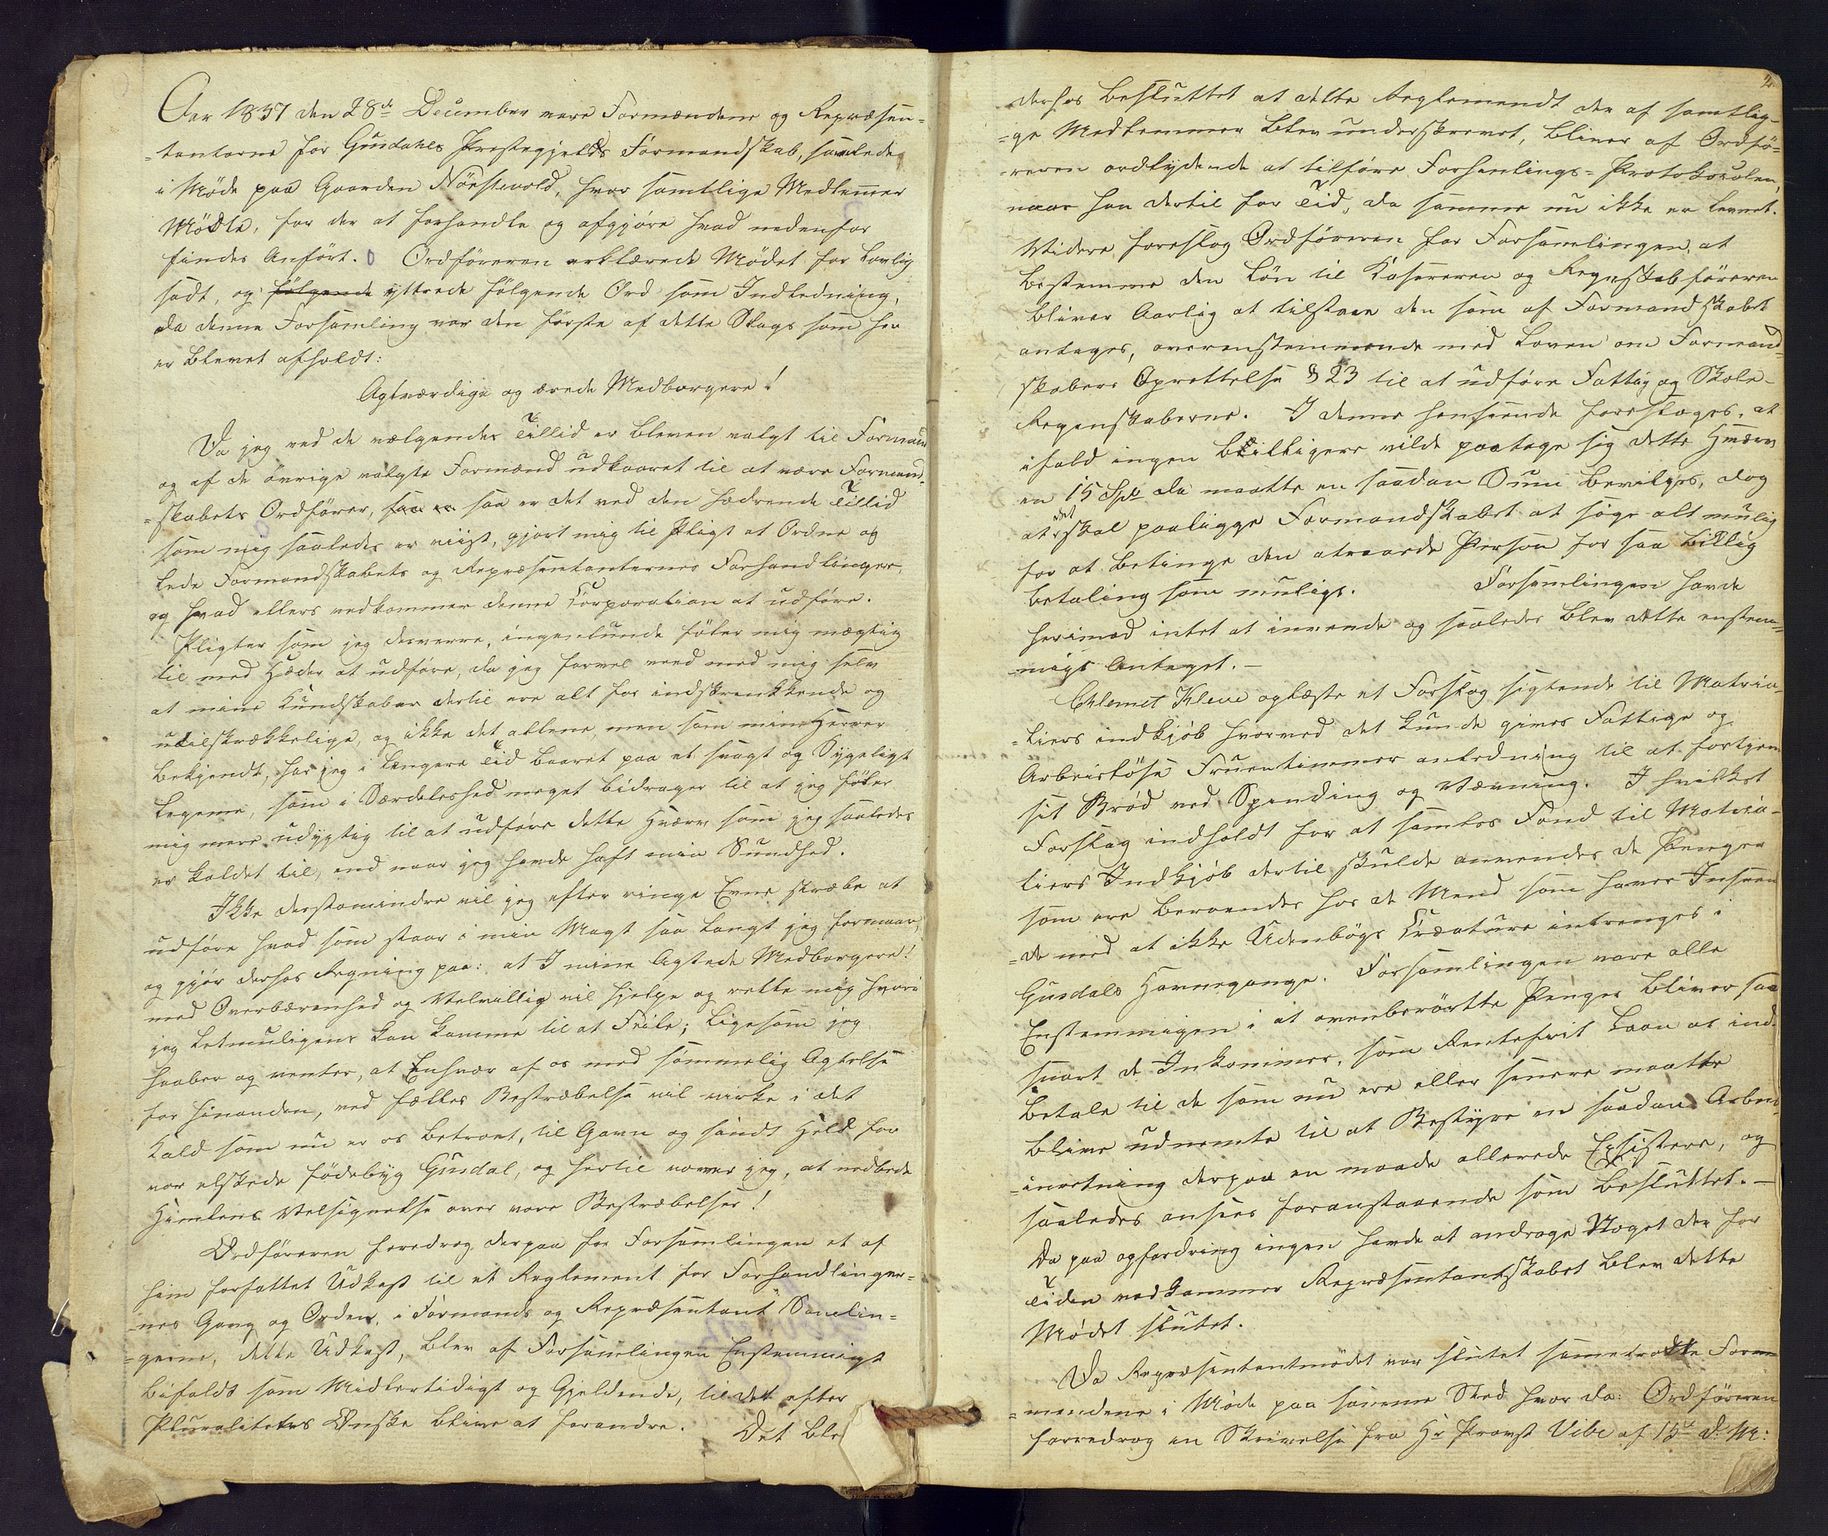 Aar 1837 den 28de December vare Formændene og Repræsen-
-tanterne for Gusdahls Prestegjelds Formandskab, samlede
i Møde paa Gaarden Nørstevold, hvor samtlige Medlemer
Mødte, for der at forhandle og afgjøre hvad nedenfor
findes Anført. Ordføreren erklærede Mødet for Lovlig
sadt, og følgende yttrede følgende Ord som Indledning,
da denne Forsamling var den første af dette Slags som her
er blevet afholdt:
Agtværdige og ærede Medborgere!
Da jeg ved de vælgendes Tillid er bleven valgt til Formand
og af de øvrige valgte Formænd udkaaret til at være Formand-
-skabets Ordfører, saa er saa er det ved den hædrende Tillid
som mig saaledes er viist, gjort mig til Pligt at Ordne og
Lede Formandskabets og Repræsentanternes Forhandlinger,
og hvad ellers vedkommer denne Corporation at udføre.
Pligter som jeg desverre, ingenlunde føler mig mægtig
til med Hæder at udføre, da jeg forvel veed med mig selv
at mine Kundskaber dertil ere alt for indskrenkkende og
utilstrækkelige, og ikke det allene, men som mine Herrer
bekjendt, har jeg i længere Tid baaret paa et svagt og Sygeligt
Legeme, som i Særdeleshed meget bidrager til at jeg føler
mig mere udygtig til at udføre dette Hværv som jeg saaledes
er kaldet til, end naar jeg havde haft min Sundhed.
Ikke destomindre vil jeg efter ringe Evne stræbe at
udføre hvad som staar i min Magt saa Langt jeg formaar,
og gjør derhos Regning paa: at I mine Agtede Medborgere!
med Overbærenhed og Velvillig vil hjelpe og rette mig hvori
jeg Letmuligens kan komme til at Feile; ligesom jeg
haaber og venter, at Enhver af os med sømmelig Agtelse
for hinanden, ved fælles Bestræbelse vil virke i det
Kald som nu er os betroet, til Gavn og sandt Held for
vor elskede fødebyg Gusdal, og hertil vover jeg, at nedbede
Himlens Velsignelse over vore Bestræbelser!
Ordføreren foredrog derpaa for Forsamlingen et af
ham forfattet Udkast til et Reglement for Forhandlinger-
-nes Gang og Orden, i Formands og Repræsentant Samlin-
-gerne, dette Udkast, blev af Forsamlingen Enstemmigt
bifaldt som Midlertidigt og Gjeldende, til det efter
Pluralitetens Ønske bliver at forandre. Det ble
2
derhos besluttet at dette Reglemendt der af samtlig-
-ge Medlemmer blev underskrevet, bliver af Ordfø-
-reren ordlydende at tilføre Forhanlings-Protokollen,
naar han dertil faar Tid, da samme nu ikke er levnet.
Videre foreslog Ordføreren for Forsamlingen, at
bestemme den Løn til Kasereren og Regnskabsføreren
bliver Aarlig at tilstaae den som af Formandskabet
antages, overenstemmende med Loven om Formand-
skabers Oprettelse § 23 til at udføre Fattig og Skole-
Regnskaberne. I denne henseende foresloges, at
ifald ingen billigere vilde paatage sig dette Hværv
en 15 Spd da maatte en saadan Sum bevilges, dog
at det skal paaligge Formandskabet at søge alt mulig
for at betinge den attraaede Person for saa billig
betaling som muligt. Forsamlingen havde
herimod intet at invende og saaledes blev dette enstem-
migt Antaget.-
Clemet Kleve oplæste et Forslag sigtende til Matria-
-liers indkjøb hvorved det kunde gives Fattige og
Arbeisløse Fruentimmer anledning til at fortjene
sit Brød ved Spinding og Vævning. I hvilket
Forslag indholdt for at samles Fond til Matria-
liers Indkjøb dertil skulde anvendes de Penger
som ere beroendes hos de Mend som haver Inseen-
-de med at ikke Udenbøgs Creature intrenges i
Gusdals Havnegange. Forsamlingen vare alle
Enstemmigen i at ovenberørte Penger bliver saa
snart de Inkommer, som Rentefrit Laan at ind-
betale til de som nu ere eller senere maatte
blive udnemte til at Bestyre en saadan Arbeis-
-inretning derpaa en maade allerede Exsistere, og
saaledes ansees foranstaaende som besluttet.-
Da paa opfordring ingen havde at andrage Noget der for
Tiden vedkommer Repræsentantskabet blev dette
Mødet slutet.
Da Repræsentantmødet var slutet sametraadte Form-
-mendene i Møde paa samme Sted hvor da: Ordføreren
forredrog en Skrivelse fra Hr Provst Vibe af 15de d: M: